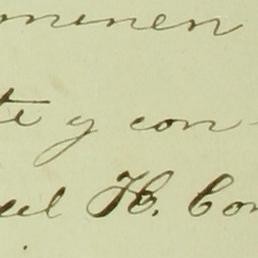 ominen
te y con-
uel H. Con